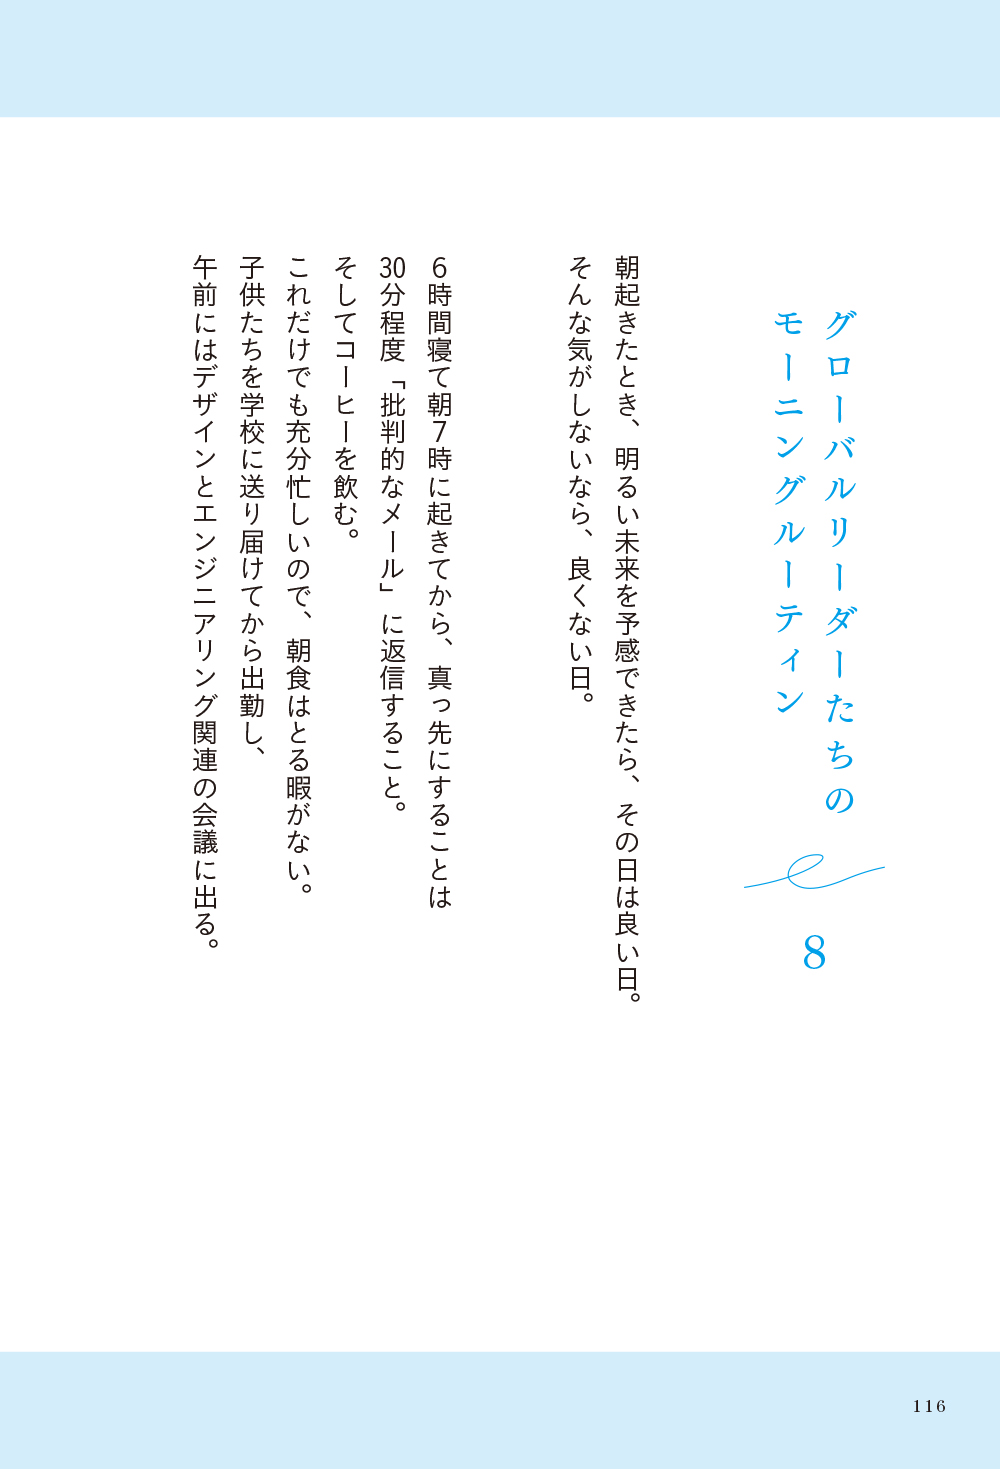 グローバルリーダーたちの
モーニングルーティン
8
朝起きたとき、明るい未来を予感できたら、その日は良い日。
そんな気がしないなら、良くない日。
6時間寝て朝7時に起きてから、真っ先にすることは
30分程度「批判的なメール」に返信すること。
そしてコーヒーを飲む。
これだけでも充分忙しいので、朝食はとる暇がない。
子供たちを学校に送り届けてから出勤し、
午前にはデザインとエンジニアリング関連の会議に出る。
116